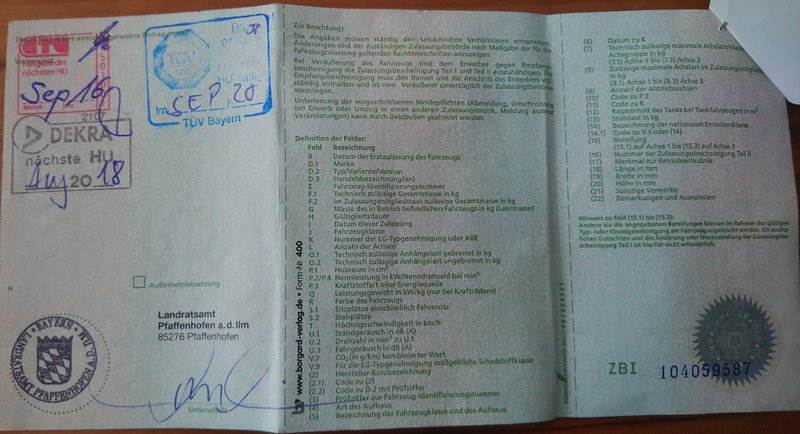 (Raum für weitere amtlich zugelassene Eintragungen)
nächsten HU
Sep. 16
Monat
TÜV
HU fällig
im SEP. 20
TÜV Bayern
DEKRA
nächste HU
Aug 2018
H
Außerbetriebsetzung
Landratsamt
Pfaffenhofen a.d. Ilm
85276 Pfaffenhofen
BAYERN
LANDRATSAMT PFAFFENHOFEN A.D. ILM
Unterschrift
Zur Beachtung!
Die Angaben müssen ständig den tatsächlichen Verhältnissen entsprechen.
Änderungen sind der zuständigen Zulassungsbehörde nach Maßgabe der für die
Fahrzeugzulassung geltenden Rechtsvorschriften anzuzeigen.
Bei Veräußerung des Fahrzeugs sind dem Erwerber gegen Empfangs-
bescheinigung die Zulassungsbescheinigung Teil I und Teil II auszuhändigen. Das
Empfangsbescheinigung muss den Namen und die Anschrift des Erwerbers voll-
ständig enthalten und ist vom Veräußerer unverzüglich der Zulassungsbehörde
vorzulegen.
Unterlassung der vorgeschriebenen Meldepflichten (Abmeldung, Umschreibung
bei Erwerb oder Umzug in einen anderen Zulassungsbezirk, Meldung anderer
Veränderungen) kann durch Geldbußen geahndet werden.
Definition der Felder:
Feld Bezeichnung
B Datum der Erstzulassung des Fahrzeugs
D.1 Marke
D.2 Typ/Variante/Version
D.3 Handelsbezeichnung(en)
E Fahrzeug-Identifizierungsnummer
F.1 Technisch zulässige Gesamtmasse in kg
F.2 Im Zulassungsmitgliedstaat zulässige Gesamtmasse in kg
G Masse des in Betrieb befindlichen Fahrzeugs in kg (Leermasse)
H Gültigkeitsdauer
I Datum dieser Zulassung
J Fahrzeugklasse
K Nummer der EG-Typgenehmigung oder ABE
L Anzahl der Achsen
O.1 Technisch zulässige Anhängelast gebremst in kg
O.2 Technisch zulässige Anhängelast ungebremst in kg
P.1 Hubraum in cm³
P.2/P.4 Nennleistung in kW/Nenndrehzahl bei min⁻¹
P.3 Kraftstoffart oder Energiequelle
Q Leistungsgewicht in kW/kg (nur bei Krafträdern)
R Farbe des Fahrzeugs
S.1 Sitzplätze einschließlich Fahrersitz
S.2 Stehplätze
T Höchstgeschwindigkeit in km/h
U.1 Standgeräusch in dB (A)
U.2 Drehzahl in min⁻¹ zu U.1
U.3 Fahrgeräusch in dB (A)
V.7 CO₂ (in g/km) kombinierter Wert
V.9 Für die EG-Typgenehmigung maßgebliche Schadstoffklasse
(2) Hersteller-Kurzbezeichnung
(2.1) Code zu (2)
(2.2) Code zu D.2 mit Prüfziffer
(3) Prüfziffer zur Fahrzeug-Identifizierungsnummer
(4) Art des Aufbaus
(5) Bezeichnung der Fahrzeugklasse und des Aufbaus
www.borgard-verlag.de • Form-Nr. 400
(6) Datum zu K
(7) Technisch zulässige maximale Achslast/Masse je
Achsgruppe in kg
(7.1) Achse 1 bis (7.3) Achse 3
(8) Zulässige maximale Achslast im Zulassungsmitgliedstaat
in kg
(8.1) Achse 1 bis (8.3) Achse 3
(9) Anzahl der Antriebsachsen
(10) Code zu P.3
(11) Code zu R
(12) Rauminhalt des Tanks bei Tankfahrzeugen in m³
(13) Stützlast in kg
(14) Bezeichnung der nationalen Emissionsklasse
(14.1) Code zu V.9 oder (14)
(15) Bereifung
(15.1) auf Achse 1 bis (15.3) auf Achse 3
(16) Nummer der Zulassungsbescheinigung Teil II
(17) Merkmal zur Betriebserlaubnis
(18) Länge in mm
(19) Breite in mm
(20) Höhe in mm
(21) Sonstige Vermerke
(22) Bemerkungen und Ausnahmen
Hinweis zu Feld (15.1) bis (15.3):
Andere als die angegebenen Bereifungen können im Rahmen der gültigen
Typ- oder Einzelgenehmigung am Fahrzeug angebracht werden. Ein zusätz-
liches Gutachten und die Änderung oder Neuausstellung der Zulassungsbe-
scheinigung Teil I ist hierfür nicht erforderlich.
ZBI 104059587